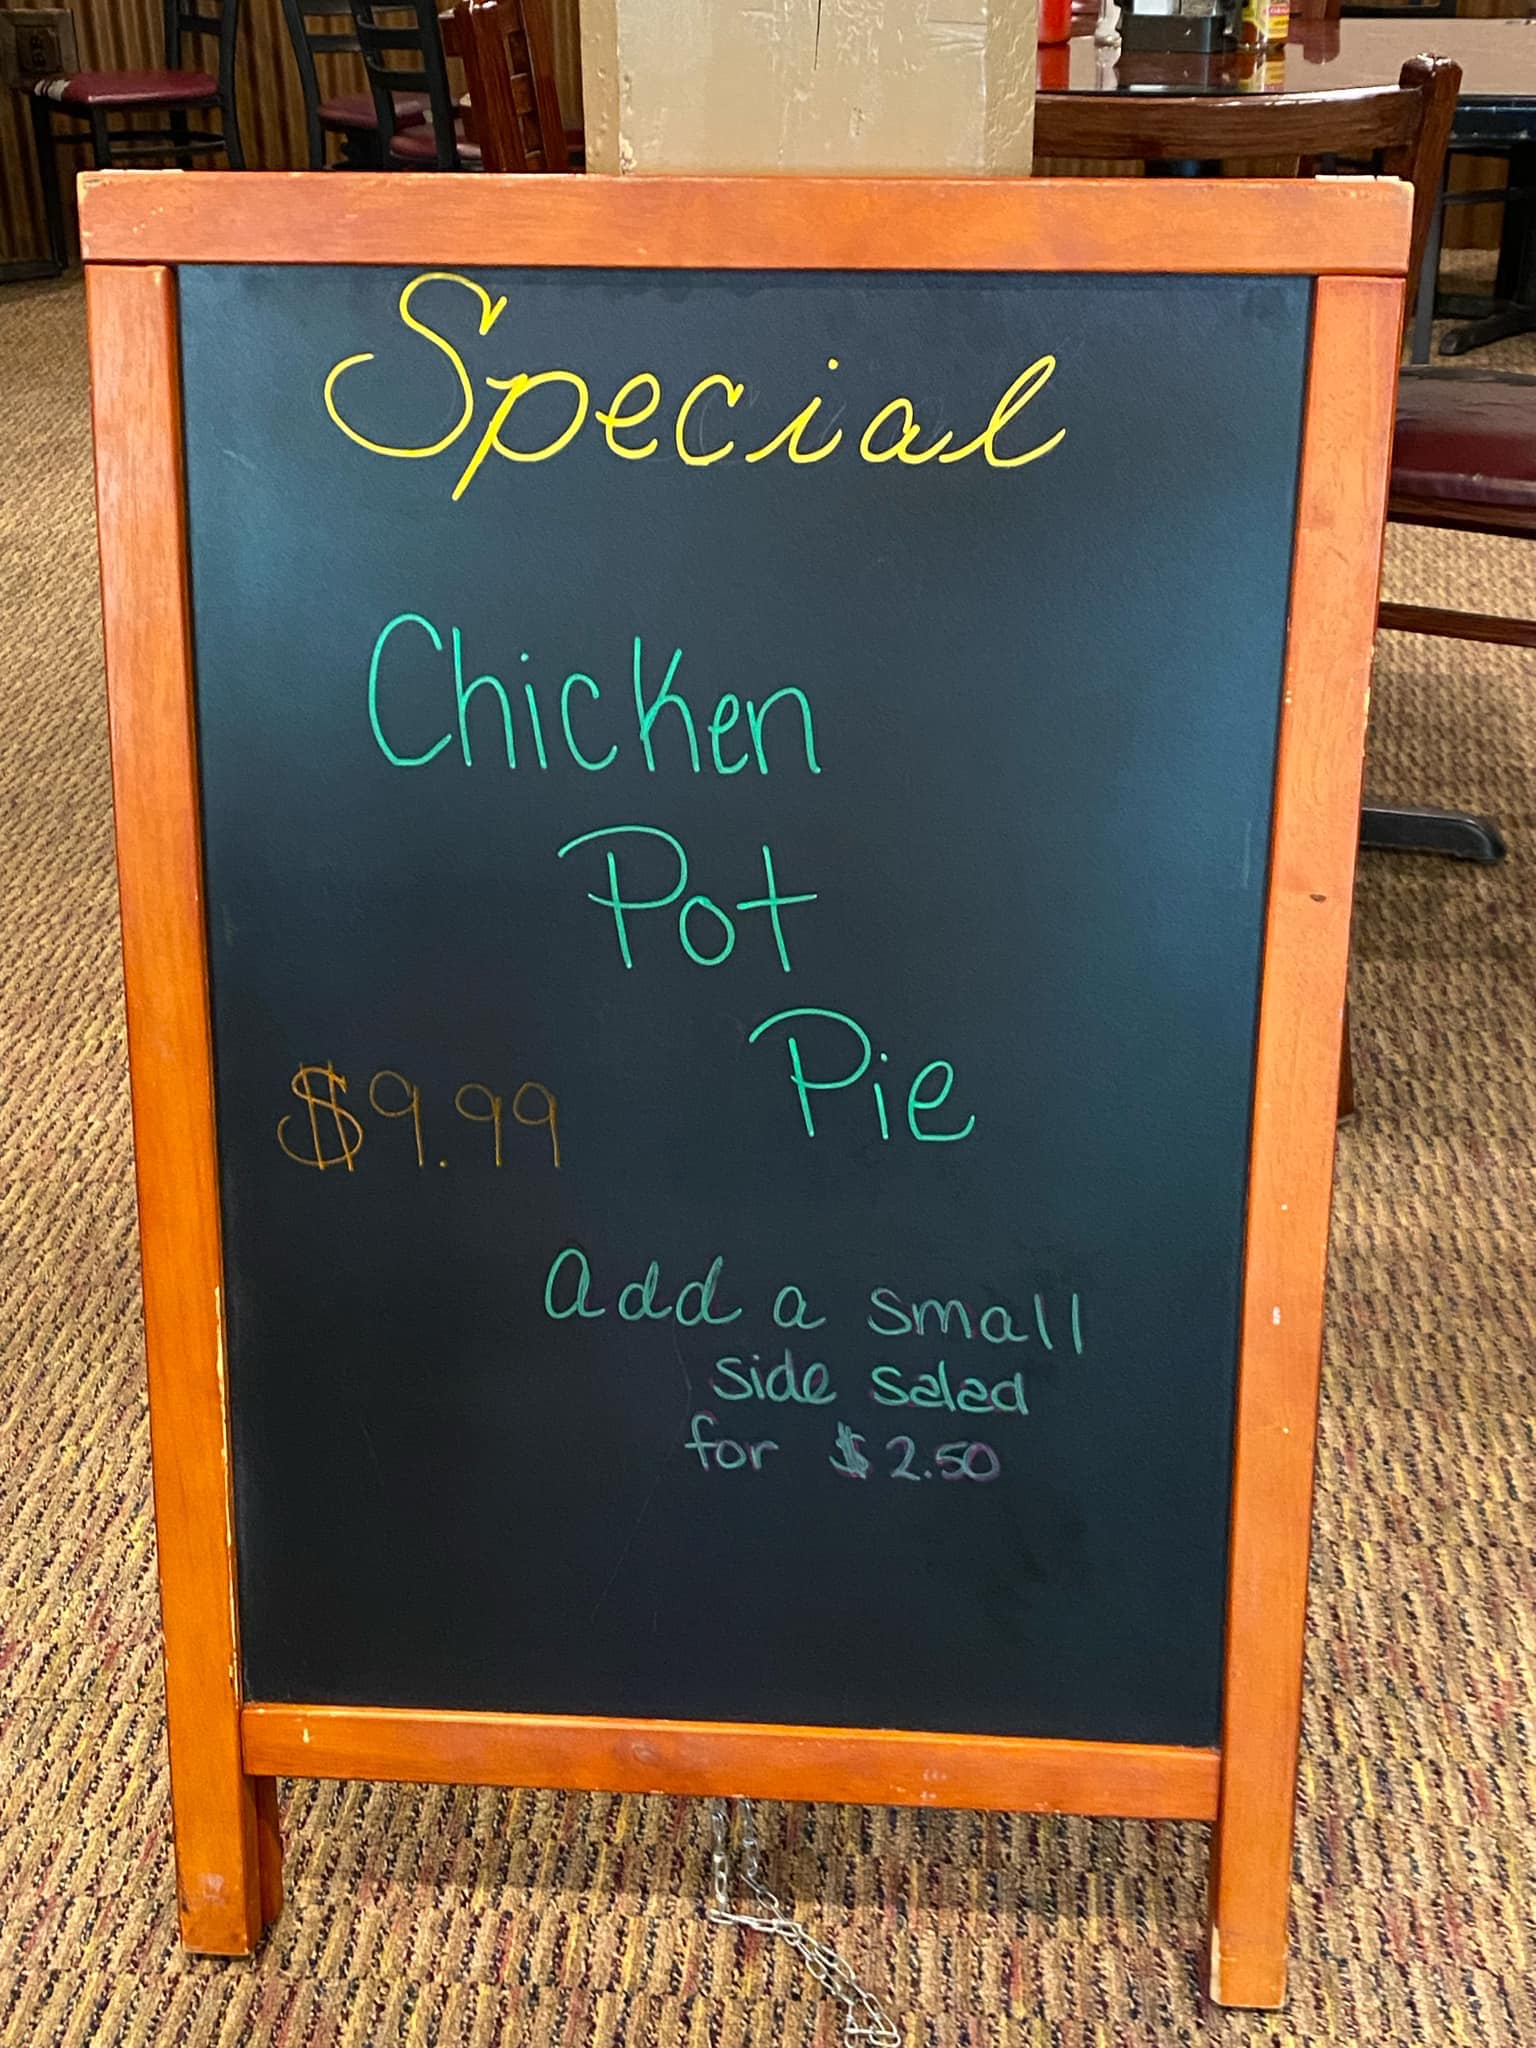 Special
Chicken
Pot
Pie
$9.99
add a small
side salad
for $2.50